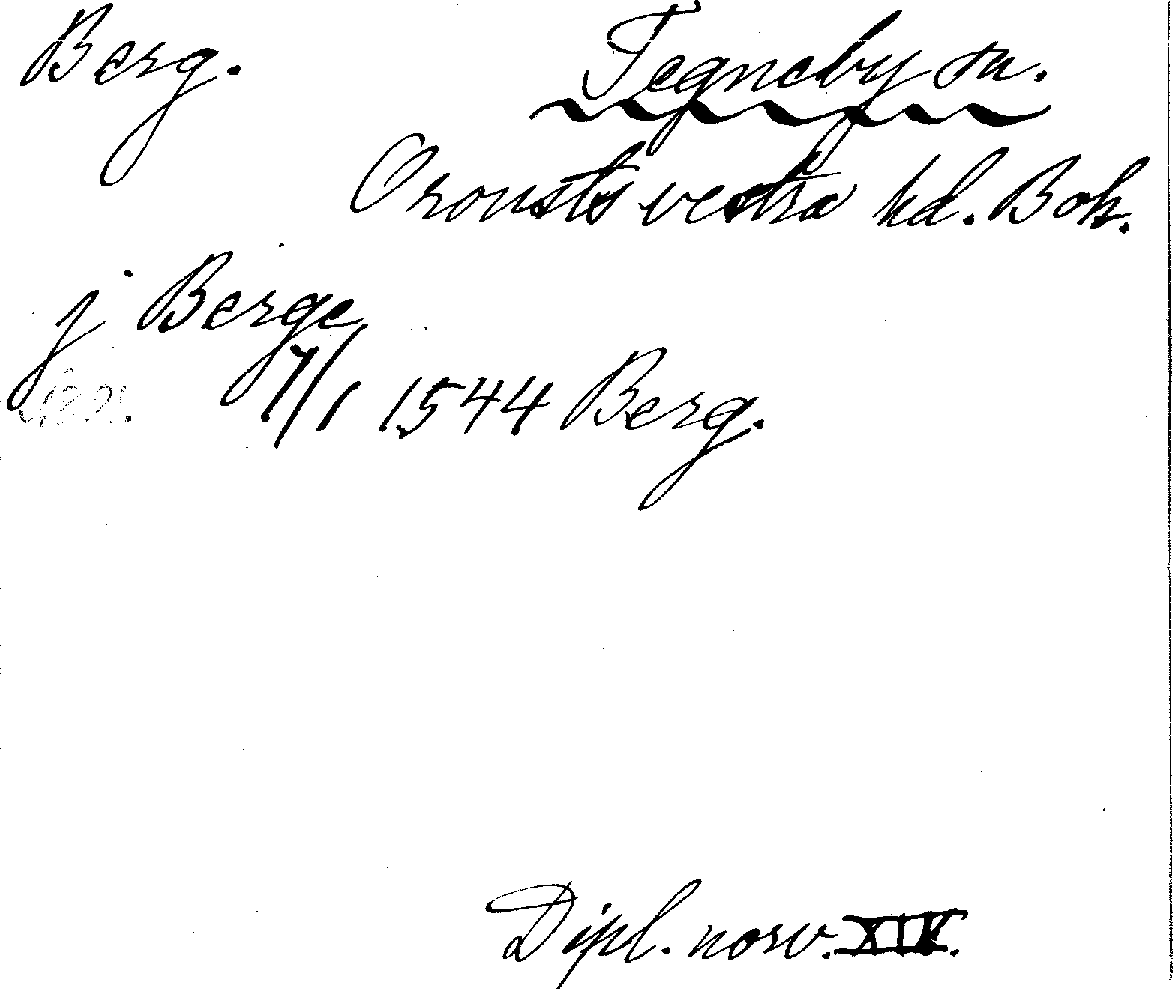 Berg. Tegneby sn.
Orousts vestra hd. Boh.
j Berge
7/1 1544 Berg.
Dipl. norv. XIV.